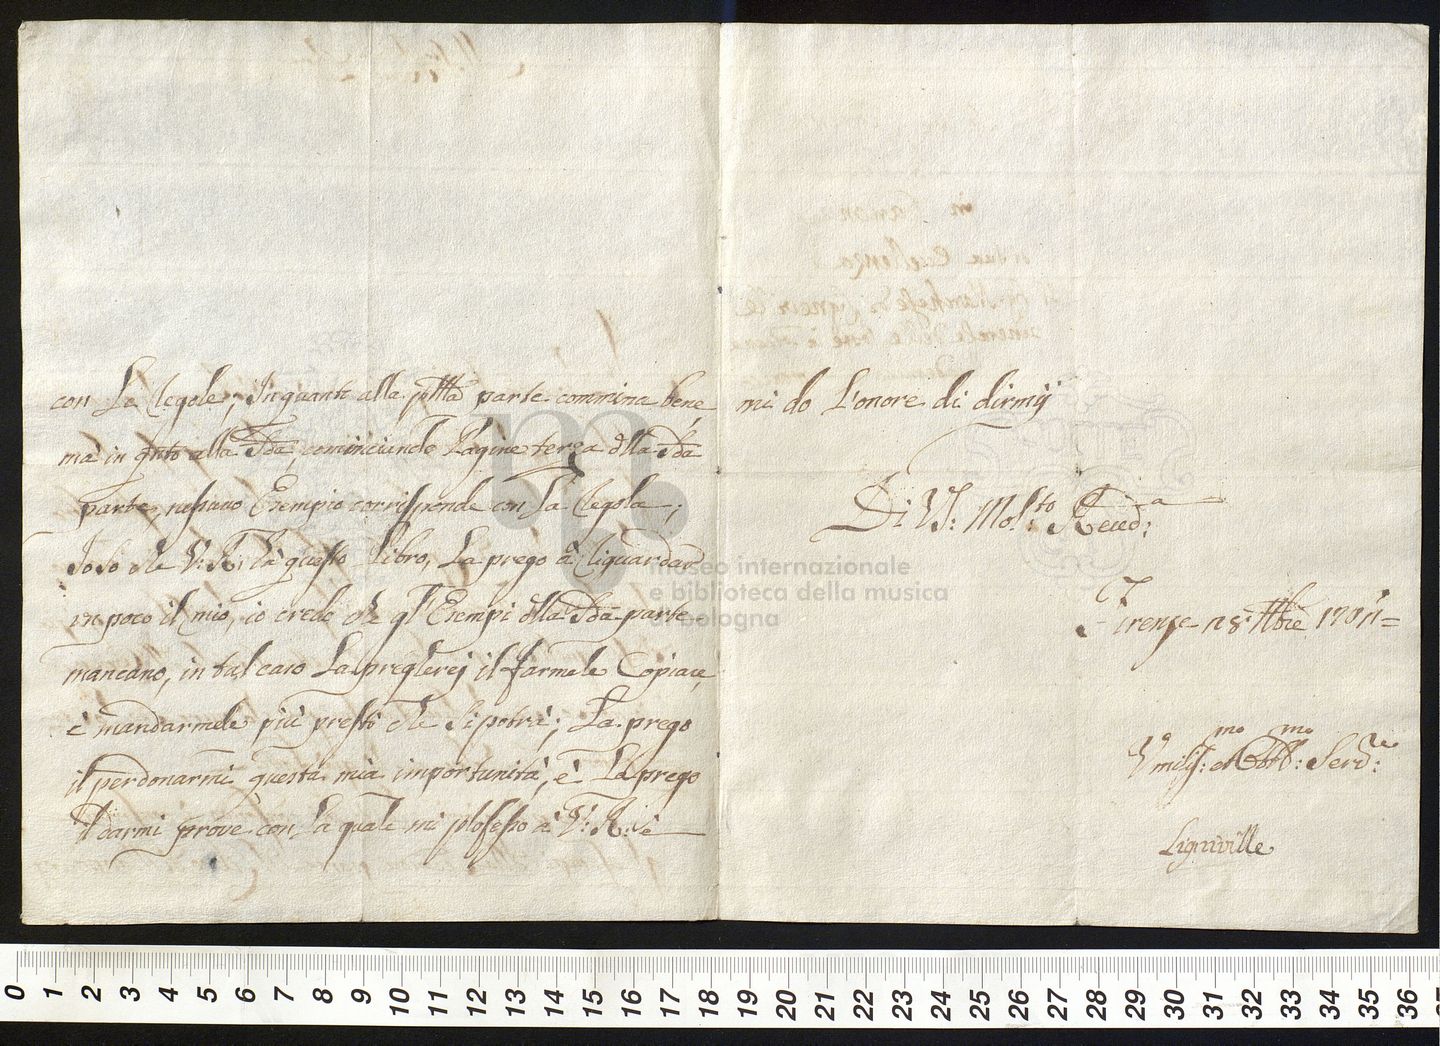 con La Regole, Inquanto alla pma parte cammina bene
mà in qnto alla Sda, cominciando Pagine terza dlla Sda
parte nessuno Esempio corrisponde con La Regola;
Solo che V: R: hà questo Libro, La prego à Riguardar
un poco il mio, io credo che gl'Esempi dlla Sda parte
mancano, in tal caso La pregherej il farmele Copiare,
è mandarmele più presto che Si potrà; La prego
il perdonarmi questa mia importunità, è La prego
darmi prove con La quale mi professo à V: R: è
mi do L'onore di dirmij
Di V: Mol:to Revd:a
Firenze 28
Umilis:mo et Obb:mo Serv:re
Lignville
museo internazionale
e biblioteca della musica
di bologna
0 1 2 3 4 5 6 7 8 9 10 11 12 13 14 15 16 17 18 19 20 21 22 23 24 25 26 27 28 29 30 31 32 33 34 35 36